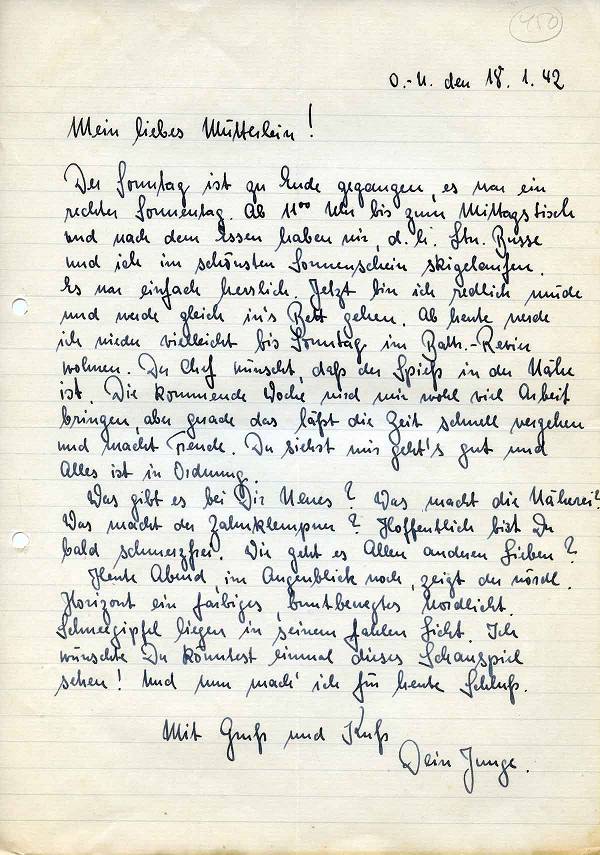 450
O.-U. den 18. 1. 42
Mein liebes Mütterlein!
Der Sonntag ist zu Ende gegangen, es war ein
rechter Sonnentag. Ab 11⁰⁰ Uhr bis zum Mittagstisch
und nach dem Essen haben wir, d. h. Stn. Busse
und ich im schönsten Sonnenschein skigelaufen.
Es war einfach herrlich. Jetzt bin ich redlich müde
und werde gleich in's Bett gehen. Ab heute werde
ich wieder vielleicht bis Sonntag im Battr.-Revier
wohnen. Der Chef wünscht, daß der Spieß in der Nähe
ist. Die kommende Woche wird mir wohl viel Arbeit
bringen, aber gerade das läßt die Zeit schnell vergehen
und macht Freude. Du siehst mir geht's gut und
Alles ist in Ordnung.
Was gibt es bei Dir Neues? Was macht die Näherei?
Was macht der Zahnklempner? Hoffentlich bist Du
bald schmerzfrei. Wie geht es Allen anderen Lieben?
Heute Abend, im Augenblick noch, zeigt der nördl.
Horizont ein farbiges, buntbewegtes Nordlicht.
Schneegipfel liegen in seinem fahlen Licht. Ich
wünschte Du könntest einmal dieses Schauspiel
sehen! Und nun mach' ich für heute Schluß.
Mit Gruß und Kuß
Dein Junge.